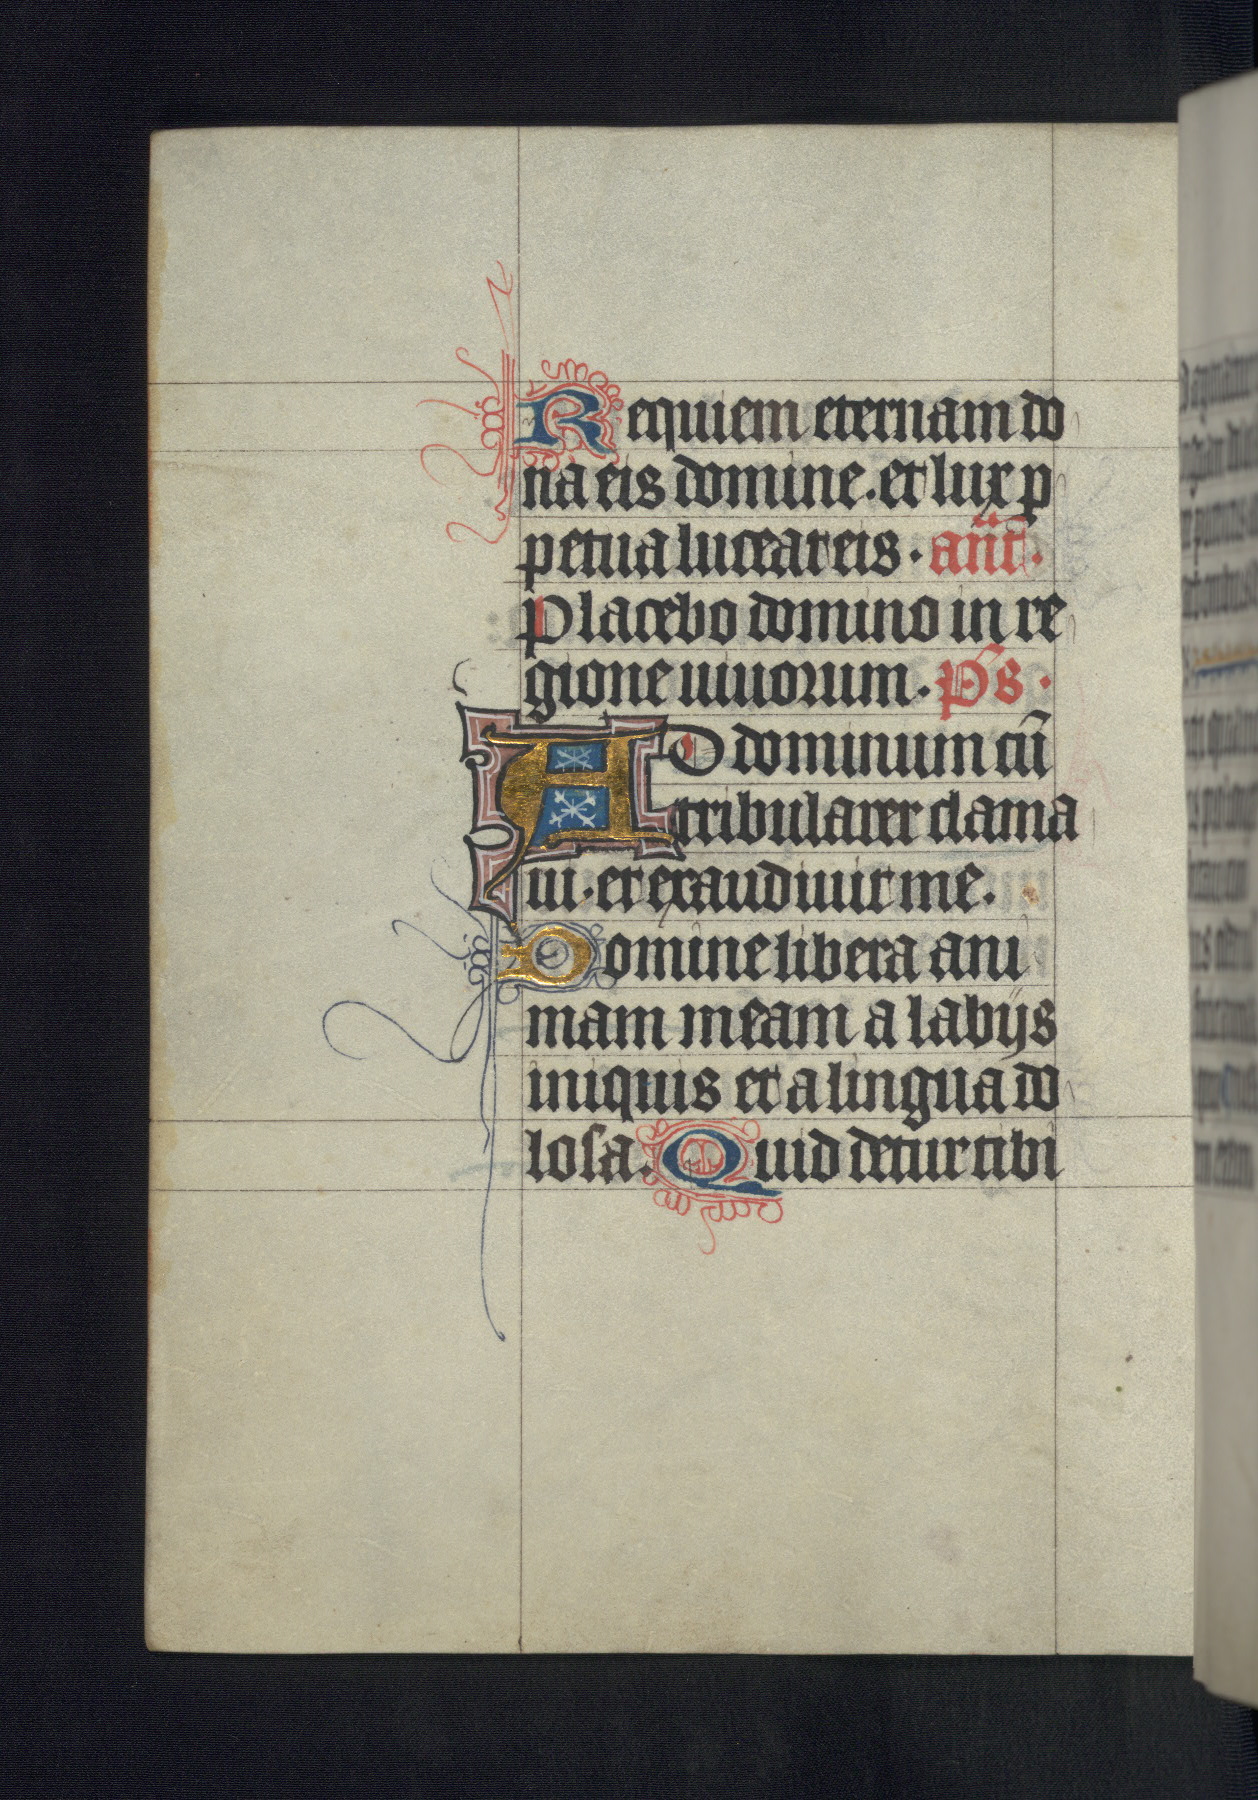 Requiem eternam do
na eis domine. et lux p
petua luceat eis. an̄t.
Placebo domino in re
gione uiuorum. p̄s.
AD dominum cū
tribularer clama
ui. et exaudiuit me.
Domine libera ani
mam meam a labijs
iniquis et a lingua do
losa. Quid detur tibi